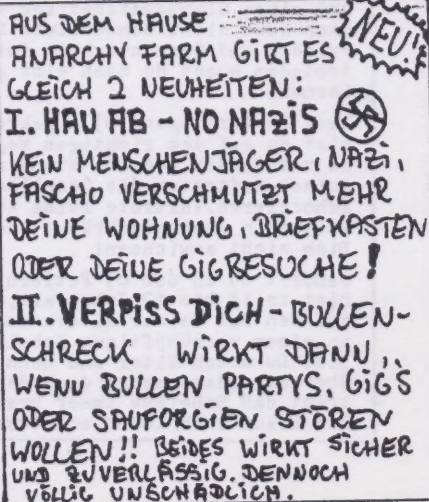 AUS DEM HAUSE
NEU!
ANARCHY FARM GIBT ES
GLEICH 2 NEUHEITEN:
I. HAU AB - NO NAZIS
KEIN MENSCHENJÄGER, NAZI,
FASCHO VERSCHMUTZT MEHR
DEINE WOHNUNG, BRIEFKASTEN
ODER DEINE GIGBESUCHE!
II. VERPISS DICH - BULLEN-
SCHRECK WIRKT DANN,
WENN BULLEN PARTYS, GIGS
ODER SAUFORGIEN STÖREN
WOLLEN!! BEIDES WIRKT SICHER
UND ZUVERLÄSSIG. DENNOCH
VÖLLIG UNSCHÄDLICH.